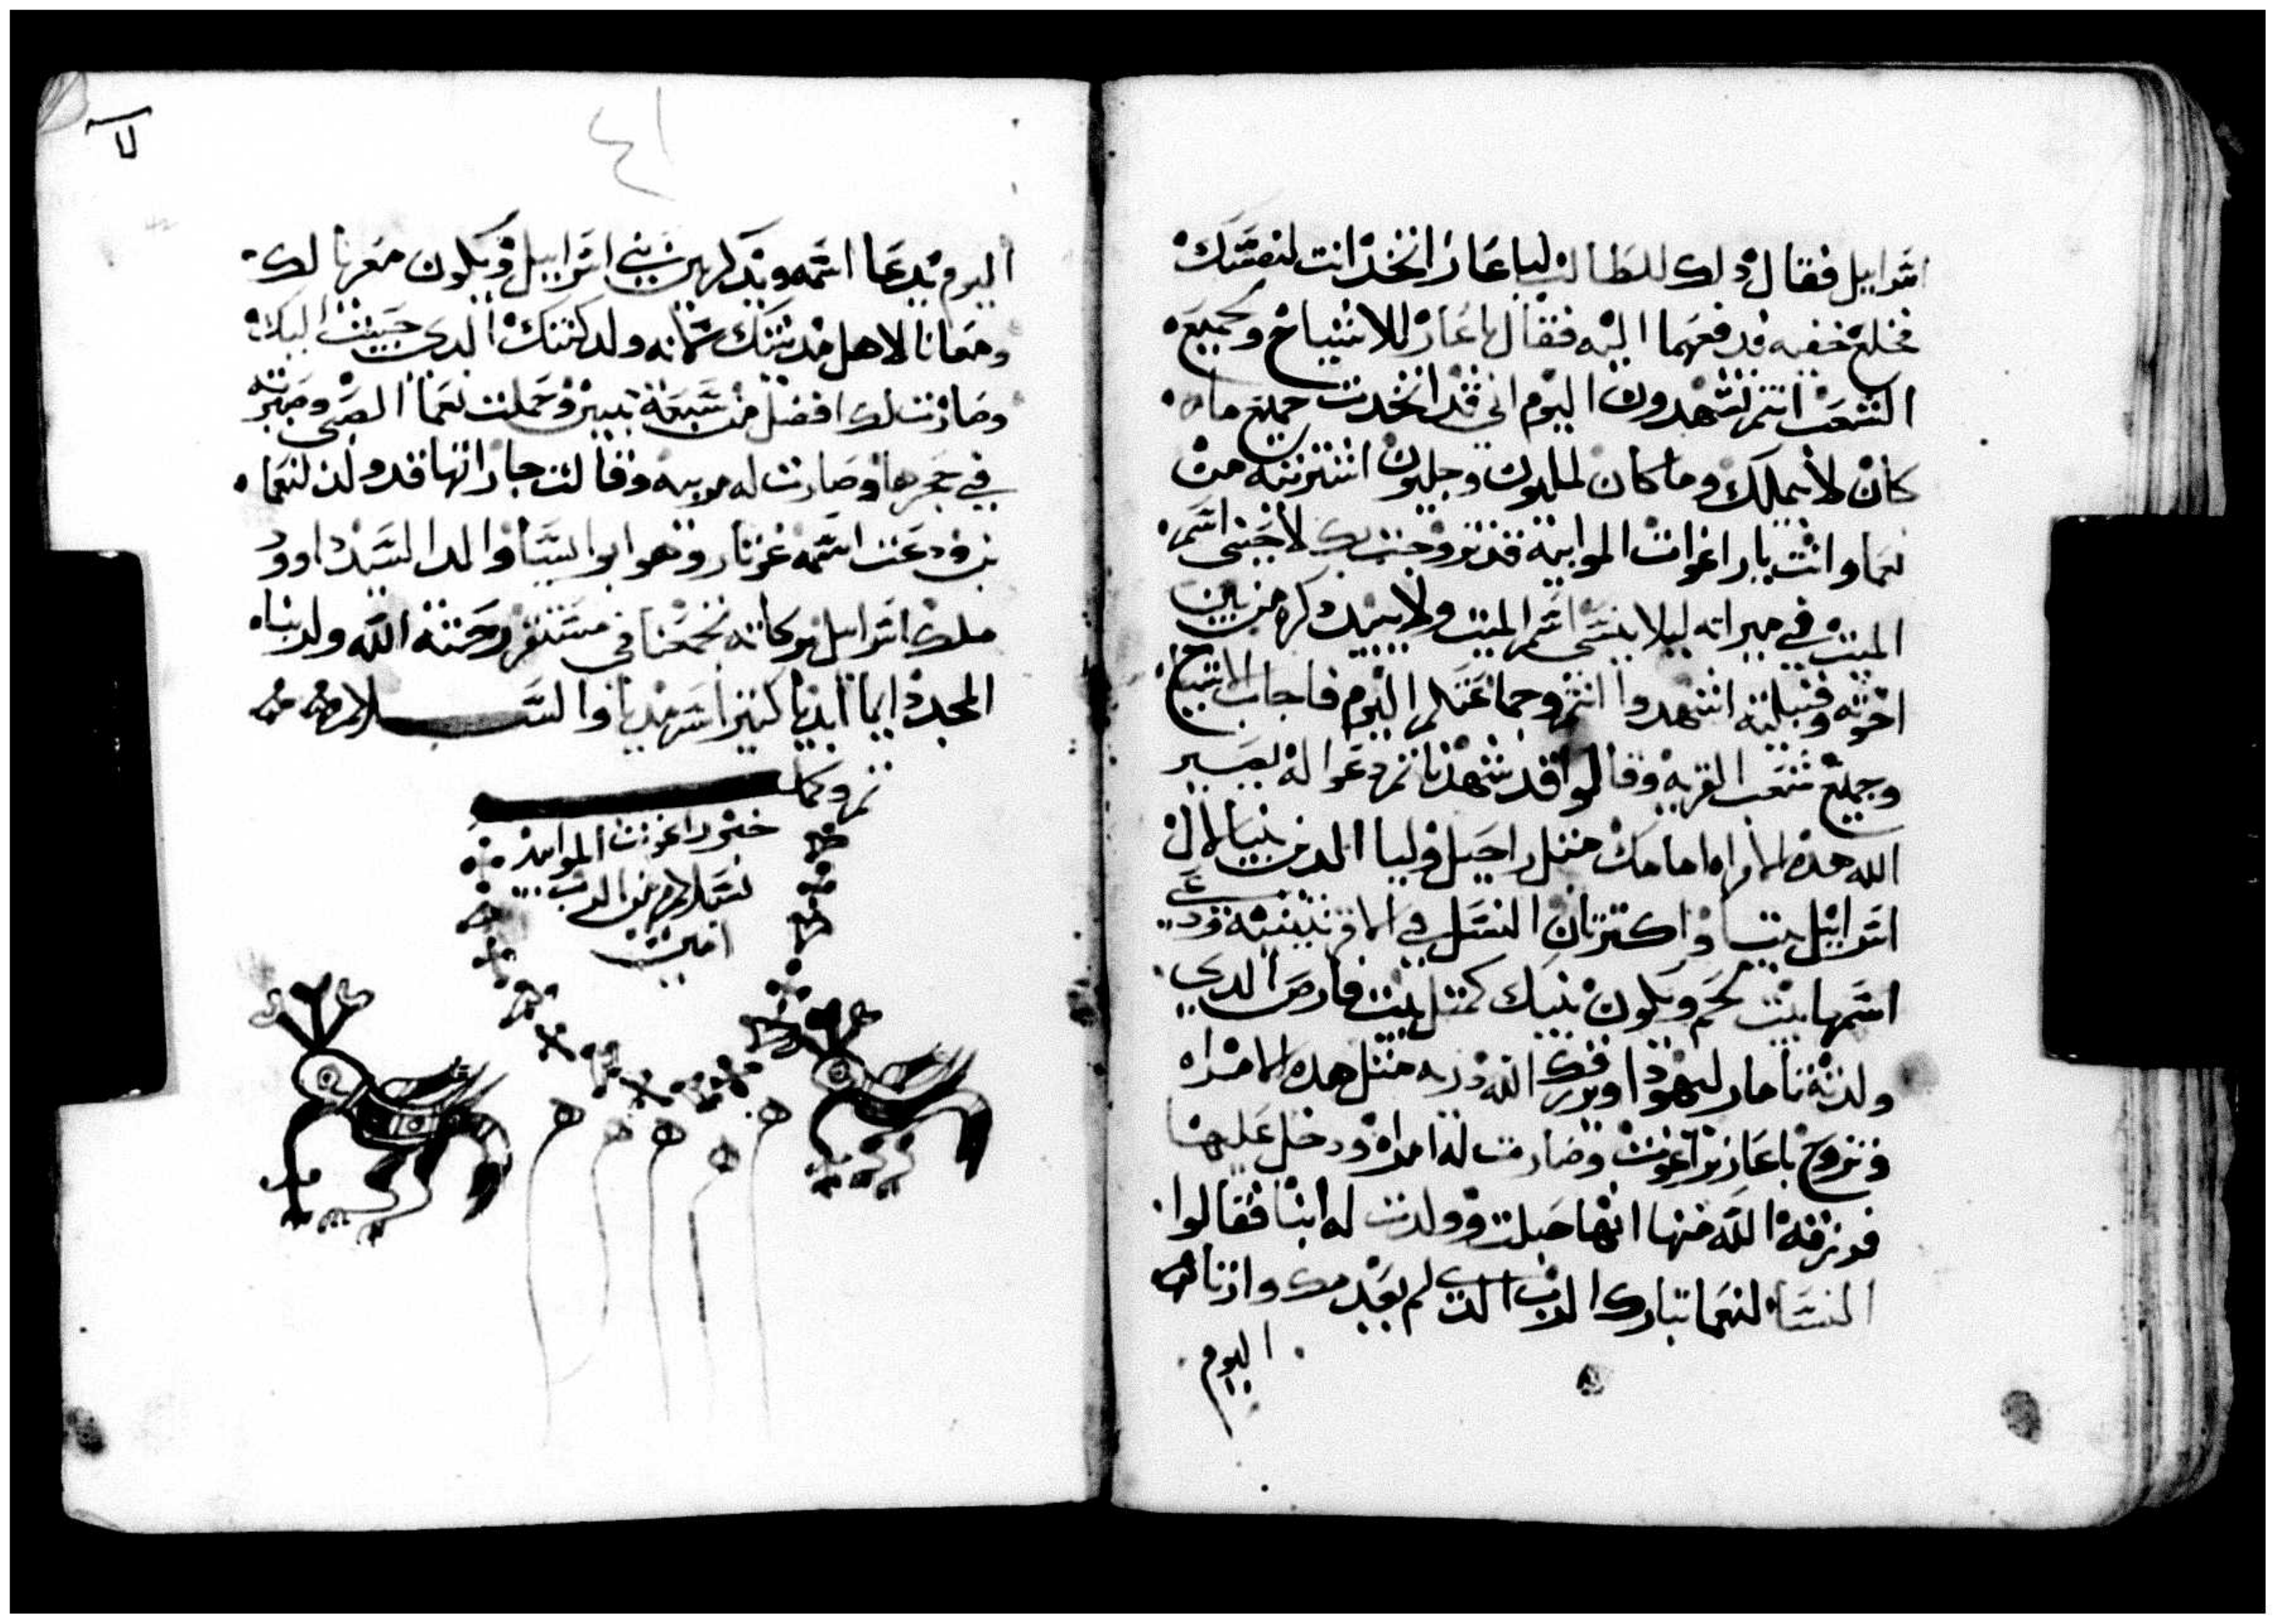 اسرابيل فقال داك للطالب لباعاز اتخذ انت لنفسك
فخلع خفيه فدفعهما اليه فقال باعاز للاشياخ وجميع
الشعب انتم تشهدون اليوم اني قد اتخدت جميع ما
كان لابيملك وما كان لمليون وجليون اشتريته من
نعما وانت باراغوات الموابية قد تزوجت بك لاجني اسم
الميت في ميراته ليلا ينسى اسم الميت ولا يبيد دكره من بين
اخوته وقبيلته اشهدوا انتم وجماعتكم اليوم فاجاب الاشياخ
وجميع شعب القريه وقالوا قد شهدنا تم دعوا له يصير
الله هده الامراه امامك متل راحيل وليا الدين بنيا لال
اسراييل بيتا واكترتان النسل في الافرتينيه
اسمها بيت لحم ويكون بيتك كمتل بيت فارص الدي
ولدته تامار ليهودا ويرزقك الله درية متل هده الامراه
وتزوج باعاز براغوت وصارت له امراه ودخل عليها
فورزقه الله منها انها حبلت وولدت له ابنا فقالوا
النسا لنعما تبارك الرب الذي لم يعدمك وارتا
اليوم
ل
٤١
اليوم يدعا اسمه ويدكر بين بني اسراييل ويكون معزيا لك
ومعانا لاهل مدينتك تمانه ولد كنتك الدي حبيت اليك
وصارت لك افضل من سبعة بنين وحملت نعما الصبي وصيرته
في حجرها وصارت له مربيه وقالت جاراتها قد ولد لنعما
بن ودعت اسمه عوبار وهوا ابو ايسا والد السيد داوود
ملك اسراييل بركاته تجمعنا في مستقر رحمته الله ولربنا
المجد دايما ابديا كتيرا سرمديا والسلام
تم وكمل
خبر راغوت الموابيه
بسلام من الرب
امين